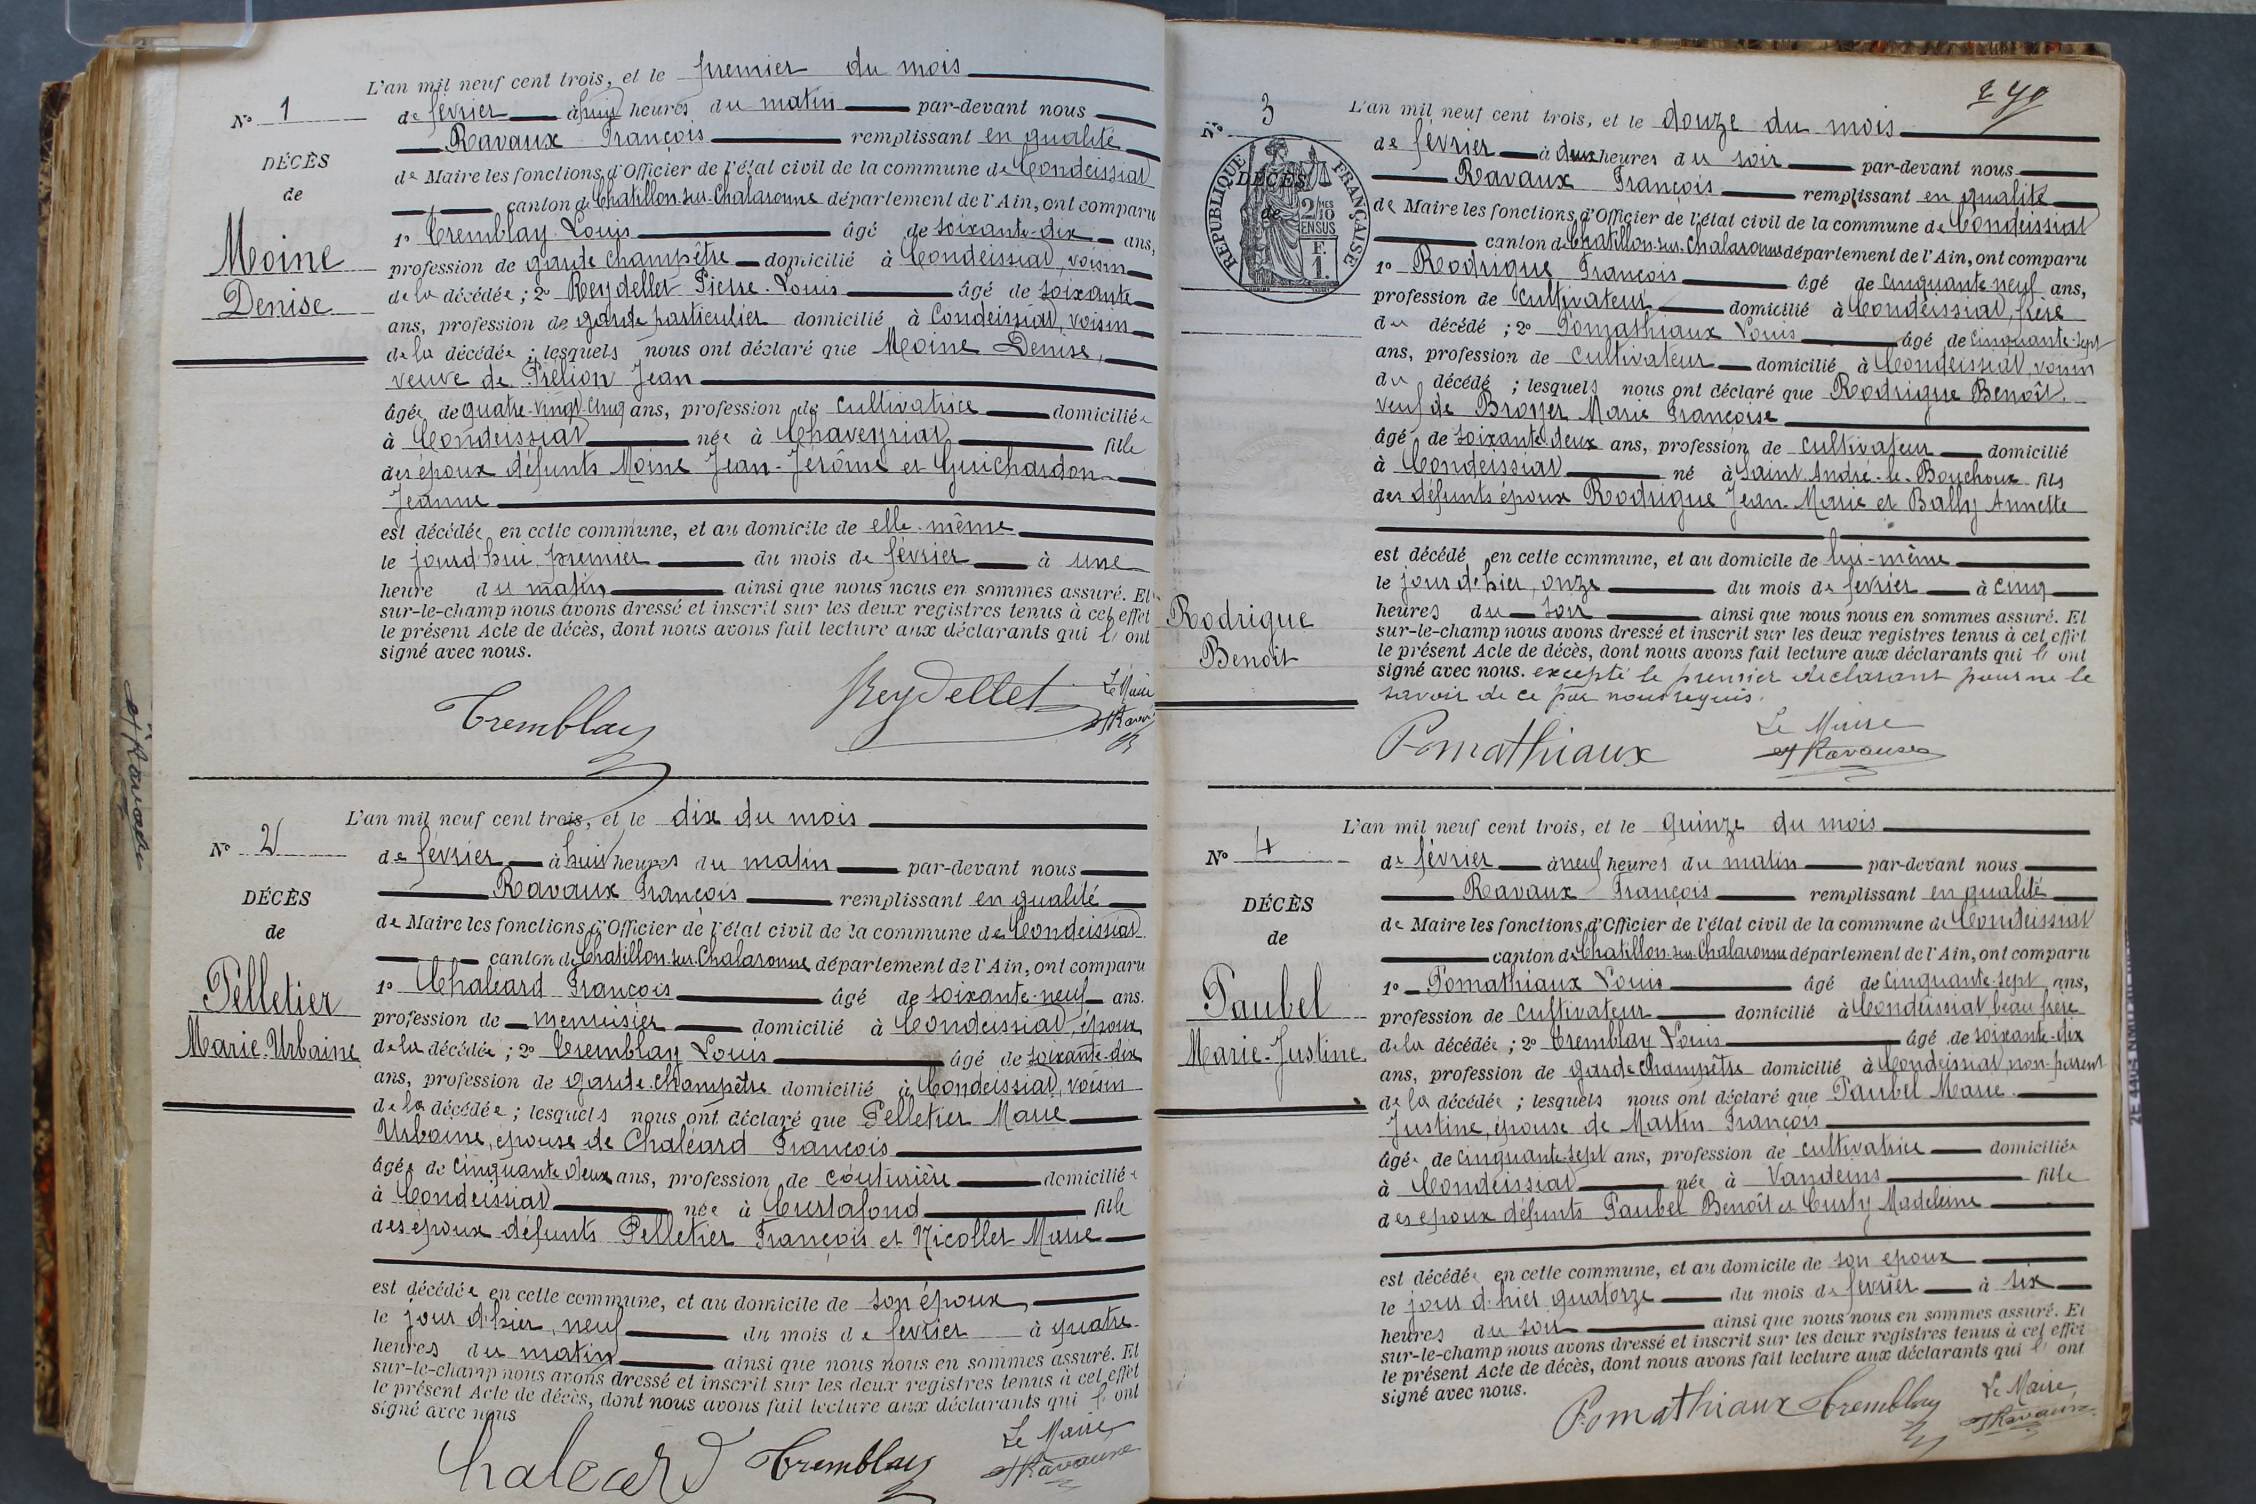 L'an mil neuf cent trois, et le premier du mois
N° 1
de février à huit heures du matin par-devant nous
Ravaux François remplissant en qualité
DÉCÈS
de Maire les fonctions d'Officier de l'état civil de la commune de Condeissiat
de
canton de Chatillon-sur-Chalaronne département de l'Ain, ont comparu
1° Tremblay Louis âgé de soixante-dix ans,
Moine
profession de garde champêtre domicilié à Condeissiat, voisin
Denise
de la décédée ; 2° Reydellet Pierre-Louis âgé de soixante
ans, profession de garde particulier domicilié à Condeissiat, voisin
de la décédée ; lesquels nous ont déclaré que Moine Denise,
veuve de Prélion Jean
âgée de quatre-vingt-cinq ans, profession de cultivatrice domiciliée
à Condeissiat née à Chaveyriat fille
des époux défunts Moine Jean-Jérôme et Guichardon
Jeanne
est décédée en cette commune, et au domicile de elle-même
le jourd'hui premier du mois de février à une
heure du matin ainsi que nous nous en sommes assuré. Et
sur-le-champ nous avons dressé et inscrit sur les deux registres tenus à cet effet
le présent Acte de décès, dont nous avons fait lecture aux déclarants qui l'ont
signé avec nous.
Tremblay
Reydellet
Le Maire
Ravaux
L'an mil neuf cent trois, et le dix du mois
N° 2
de février à huit heures du matin par-devant nous
DÉCÈS
Ravaux François remplissant en qualité
de
de Maire les fonctions d'Officier de l'état civil de la commune de Condeissiat
canton de Chatillon-sur-Chalaronne département de l'Ain, ont comparu
Pelletier
1° Chaléard François âgé de soixante-neuf ans.
profession de menuisier domicilié à Condeissiat, époux
Marie-Urbaine
de la décédée ; 2° Tremblay Louis âgé de soixante-dix
ans, profession de garde-champêtre domicilié à Condeissiat, voisin
de la décédée ; lesquels nous ont déclaré que Pelletier Marie
Urbaine, épouse de Chaléard François
âgée de cinquante deux ans, profession de couturière domiciliée
à Condeissiat née à Curtafond fille
des époux défunts Pelletier François et Nicollet Marie
est décédée en cette commune, et au domicile de son époux,
le jour d'hier, neuf du mois de février à quatre
heures du matin ainsi que nous nous en sommes assuré. Et
sur-le-champ nous avons dressé et inscrit sur les deux registres tenus à cet effet
le présent Acte de décès, dont nous avons fait lecture aux déclarants qui l'ont
signé avec nous
Chaleard
Tremblay
Le Maire
Ravaux
L'an mil neuf cent trois, et le douze du mois
N° 3
de février à deux heures du soir par-devant nous
Ravaux François remplissant en qualité
RÉPUBLIQUE FRANÇAISE
2/10 MES EN SUS
F. 1.
DÉCÈS
de
de Maire les fonctions d'Officier de l'état civil de la commune de Condeissiat
canton de Chatillon-sur-Chalaronne département de l'Ain, ont comparu
1° Rodrigue François âgé de cinquante neuf ans,
profession de cultivateur domicilié à Condeissiat, frère
du décédé ; 2° Pomathiaux Louis âgé de cinquante-sept
ans, profession de cultivateur domicilié à Condeissiat, voisin
du décédé ; lesquels nous ont déclaré que Rodrigue Benoît,
veuf de Broyer Marie Françoise
âgé de soixante deux ans, profession de cultivateur domicilié
à Condeissiat né à Saint André-le-Bouchoux fils
des défunts époux Rodrigue Jean-Marie et Bally Annette
est décédé en cette commune, et au domicile de lui-même
le jour d'hier, onze du mois de février à cinq
heures du soir ainsi que nous nous en sommes assuré. Et
Rodrigue
Benoît
sur-le-champ nous avons dressé et inscrit sur les deux registres tenus à cet effet
le présent Acte de décès, dont nous avons fait lecture aux déclarants qui l'ont
signé avec nous. excepté le premier déclarant pour ne le
savoir de ce par nous requis.
Pomathiaux
Le Maire
Ravaux
L'an mil neuf cent trois, et le quinze du mois
N° 4
de février à neuf heures du matin par-devant nous
Ravaux François remplissant en qualité
DÉCÈS
de Maire les fonctions d'Officier de l'état civil de la commune de Condeissiat
de
canton de Chatillon-sur-Chalaronne département de l'Ain, ont comparu
1° Pomathiaux Louis âgé de cinquante-sept ans,
Paubel
profession de cultivateur domicilié à Condeissiat beau frère
Marie-Justine
de la décédée ; 2° Tremblay Louis âgé de soixante-dix
ans, profession de garde champêtre domicilié à Condeissiat, non-parent
de la décédée ; lesquels nous ont déclaré que Paubel Marie
Justine, épouse de Martin François
âgée de cinquante-sept ans, profession de cultivatrice domiciliée
à Condeissiat née à Vandeins fille
des époux défunts Paubel Benoît et Custy Madeleine
est décédée en cette commune, et au domicile de son époux
le jour d'hier quatorze du mois de février à six
heures du soir ainsi que nous nous en sommes assuré. Et
sur-le-champ nous avons dressé et inscrit sur les deux registres tenus à cet effet
le présent Acte de décès, dont nous avons fait lecture aux déclarants qui l'ont
signé avec nous.
Pomathiaux
Tremblay
Le Maire,
Ravaux